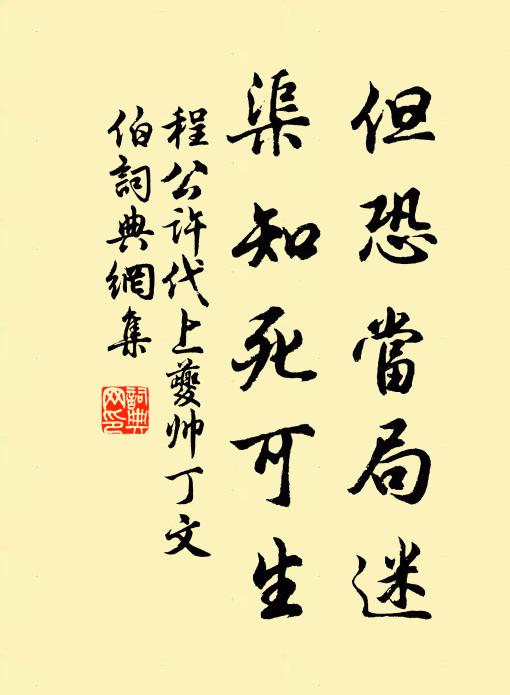 但恐當局迷
渠知死可生
程公许代上夔帅丁文
伯詞典網集
詞典
网印